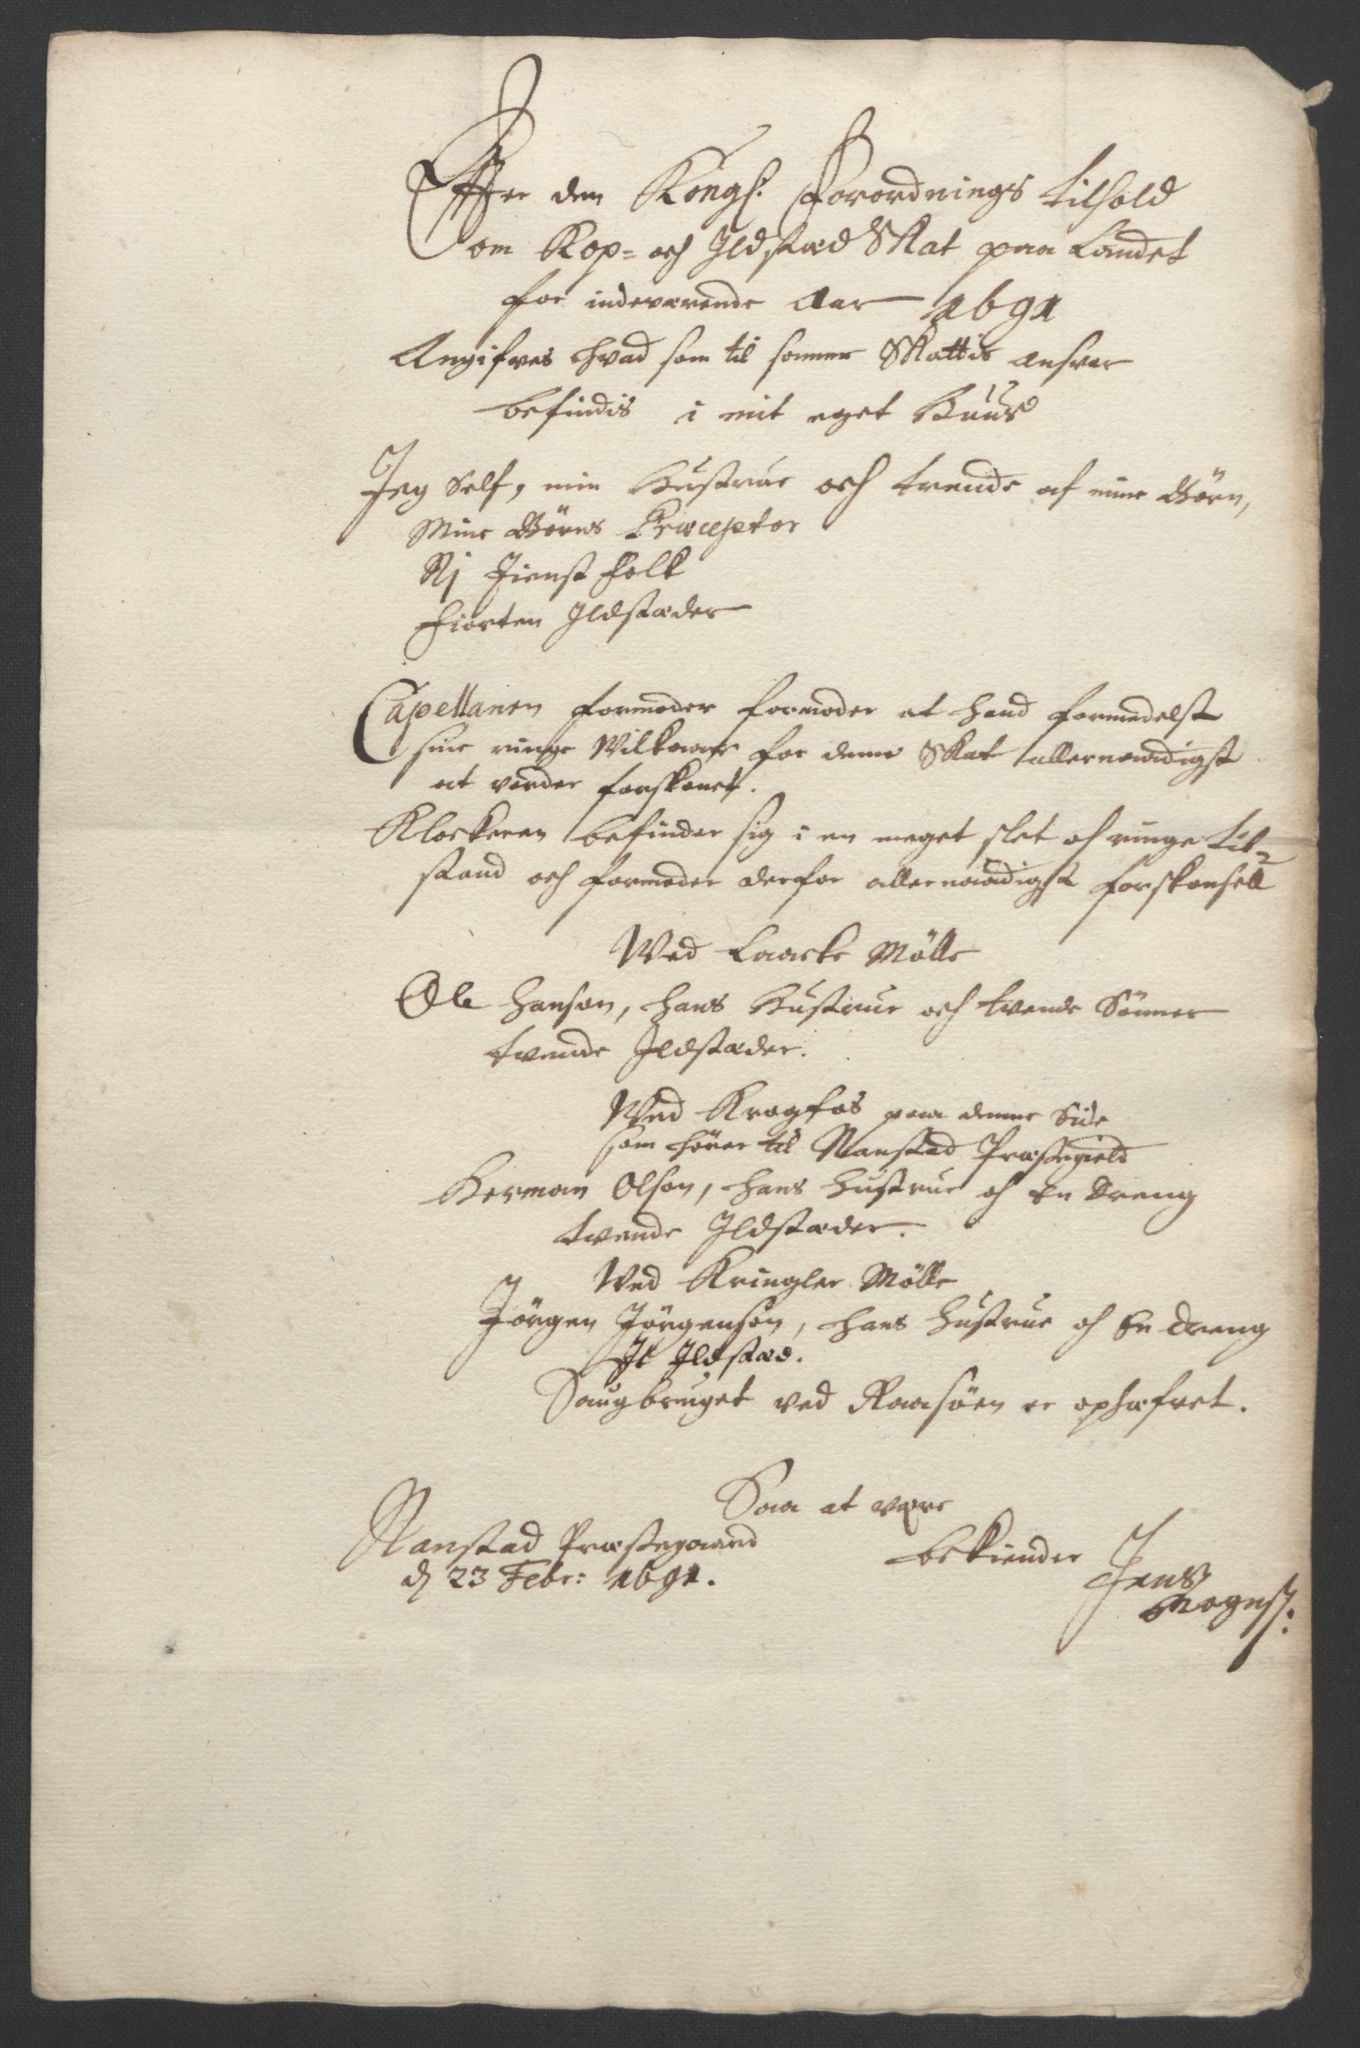 Efter dem Kongl: Forordnings tilhold
om Kop= och Ildstæd Skat paa Landet
for indeværende Aar 1691
Angifves hvad som til samme Skattis ansvar
befindis i mit eget Huus
Jeg Self, min Hustrue och trende af mine Børn,
Mine Børns Præceptor
XI Tienst folk
Fiorten Ildstæder
Capellanen formoder formoder at hand formedelst
sine ringe Vilkaar for denne Skat allernaadigst
at vorder forskonet.
Klockeren befinder sig i en meget slet och ringe til=
stand och formoder derfor allernaadigst forskonsell
Ved Laacke Mølle
Ole Hanson, hans Hustrue och tvende Sønner
tvende Ildstæder.
Ved Kragfos paa denne Side
som hører til Nanstad Præstegield
Herman Olson, hans Hustrue och En Dreng
tvende Ildstæder.
Ved Kringler Mølle
Jørgen Jørgensøn, hans Hustrue och En Dreng
It Ildstæd.
Saugbruget ved Raasøen er ophæfvet.
Saa at være
Nanstad Præstegaard
bekiender
d 23 Febr: 1691.
Jens
Mognss: